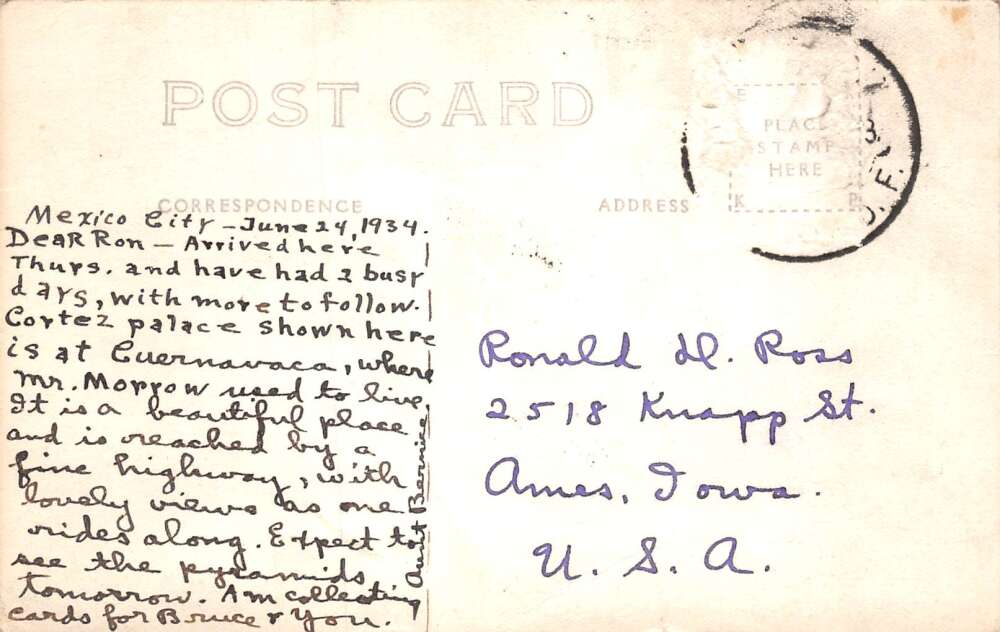 POST CARD
CORRESPONDENCE
ADDRESS
PLACE
STAMP
HERE
E
K
P
D.F.
Mexico City - June 24, 1934.
Dear Ron - Arrived here
Thurs. and have had 2 busy
days, with more to follow.
Cortez palace shown here
is at Cuernavaca, where
Mr. Morrow used to live.
It is a beautiful place
and is reached by a
fine highway, with
lovely views as one
rides along. Expect to
see the pyramids
tomorrow. Am collecting
cards for Bruce & You.
Aunt Bernice
Ronald D. Ross
2518 Knapp St.
Ames, Iowa.
U. S. A.